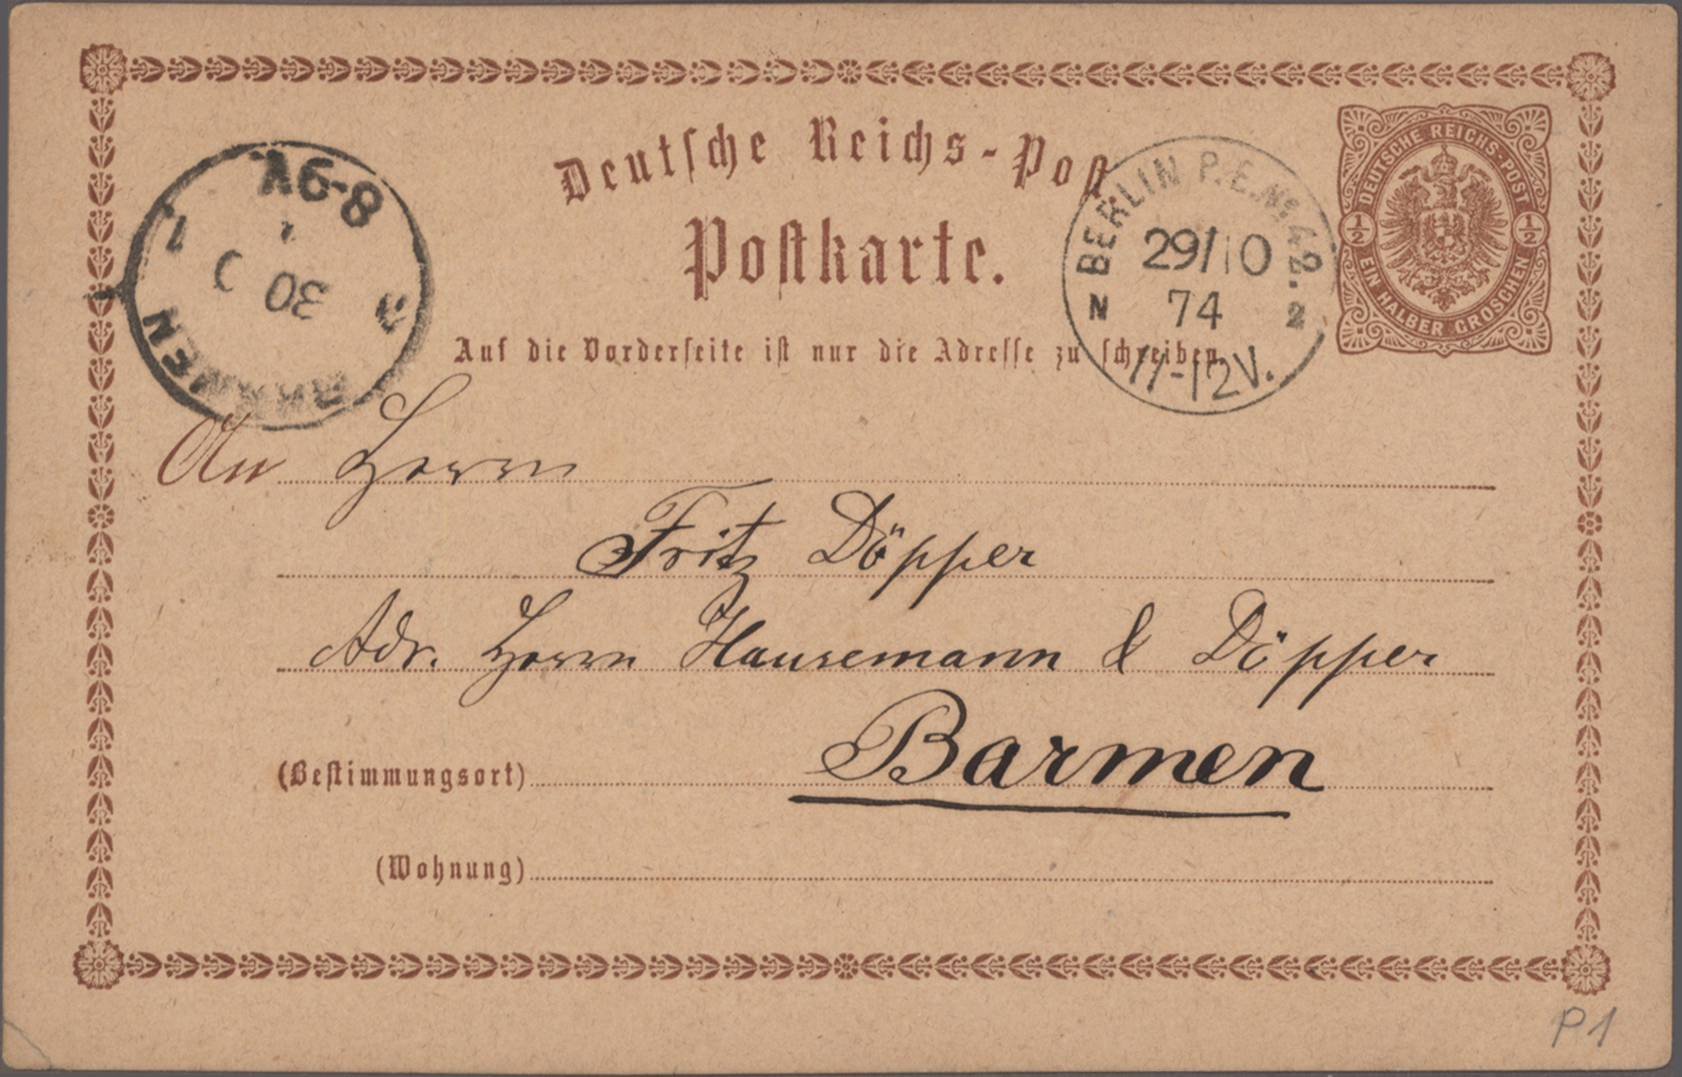 Deutsche Reichs-Post
Postkarte.
Auf die Vorderseite ist nur die Adresse zu schreiben.
DEUTSCHE REICHS-POST
½ ½
EIN HALBER GROSCHEN
BERLIN P.E. No. 42.
29/10
74
N 2
11-12V.
8-9V.
30
BARMEN
An Herrn
Fritz Döpper
Adr. Herrn Hausemann & Döpper
(Bestimmungsort) Barmen
(Wohnung)
P1